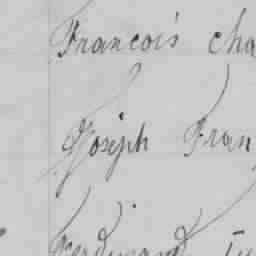 François cha
Joseph Fran
Ferdinand